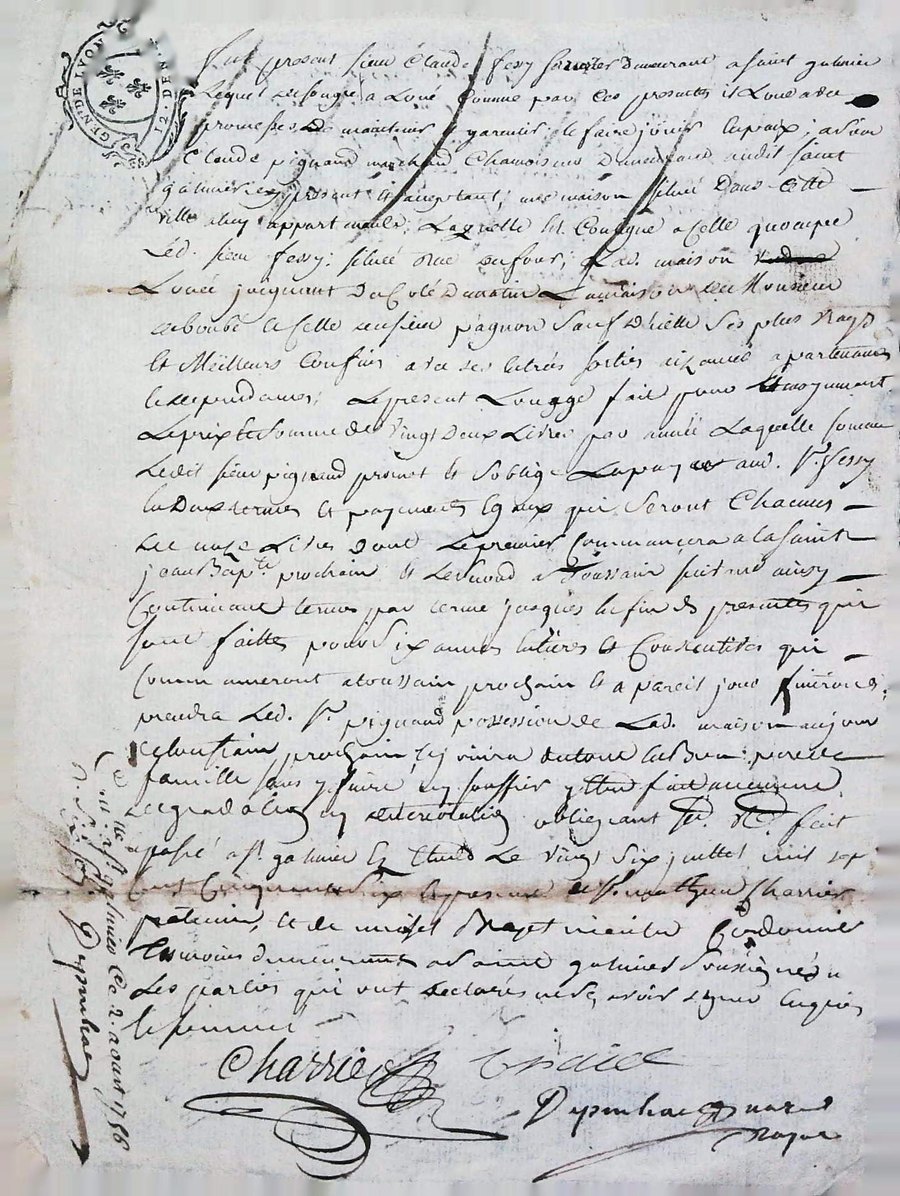 GEN DE LYON
12. DEN
fut present sieur Claude fessy demeurant a saint galmier
Lequel de son gre a Loué comme par ces presentes il Loue avec
promesses de maintenir garentir, et faire jouir en paix, a sieur
Claude pignand marchand Chamoiseur demeurant audit saint
galmier cy present et acceptant, une maison située Dans Cette
ville a luy appartenante, Laquelle est Contigue a Celle qu'occupe
Led. sieur fessy, située Rue du four, Lad. maison
Louée joignant Du Coté De matin La maison de Monsieur
et Celle du sieur pagnon sauf D'icelle ses plus vrays
et Meilleurs Confins avec ses entrés sorties aizances apartenances
et dependances, Le present Louage fait pour et moyennant
Le prix et somme de vingt deux Livres par année Laquelle somme
Ledit sieur pignand promet et s'oblige La payer aud. Sr. fessy
en Deux termes et payements egaux qui seront Chacuns
de onze Livres dont Le premier Commancera a la saint
jean Bapte. prochain et Le second a Toussain suivant ainsy
Continuant terme par terme jusques la fin des presentes qui
sont faittes pour six années entières et Consecutives qui
Commanceront a toussain prochain et a pareil jour finiront;
prendra Led. Sr. pignand possession de Lad. maison au jour
de toussain prochain en jouira
famille sans y faire ny souffrir y etre fait aucunne
degradation ny deterioration obligeant fait
passé a St. galmier Etude Le vingt six juillet mil sept
Cent Cinquante six en presence de Sr. mathieu Charrier
praticien, et de Cordonnier
temoins demeurant a saint galmier soussignés
Les parties qui ont declarés ne sçavoir signer enquis
et sommés
Charrier
Depinhac
Nore
Royal
Clle. a St. galmier Ce 2. aoust 1756
Depinhac